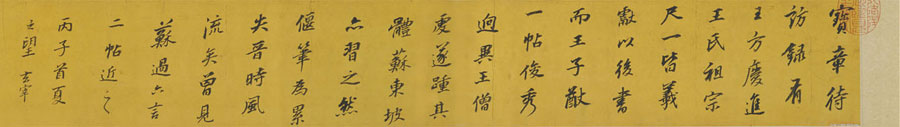 寶章待
訪録有
王方慶進
王氏祖宗
尺一皆羲
獻以後書
而王子猷
一帖俊秀
迥異王僧
虔遂踵其
體蘇東坡
亦習之然
偃筆為累
失晉時風
流矣曾見
蘇過亦言
二帖近之
丙子首夏
玄宰